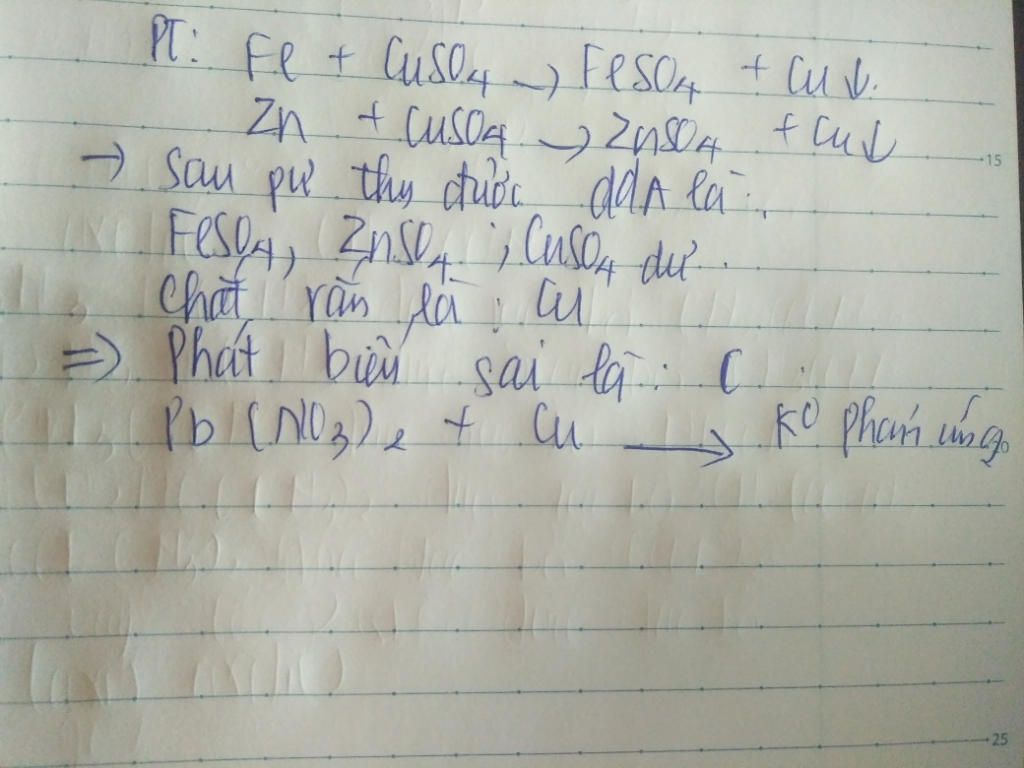 PT: Fe + CuSO4 → FeSO4 + Cu↓.
Zn + CuSO4 → ZnSO4 + Cu↓
15
→ Sau pư thu được ddA là:
FeSO4, ZnSO4; CuSO4 dư.
Chất rắn là: Cu
⇒ Phát biểu sai là: C.
Pb(NO3)2 + Cu → Ko phản ứng
25